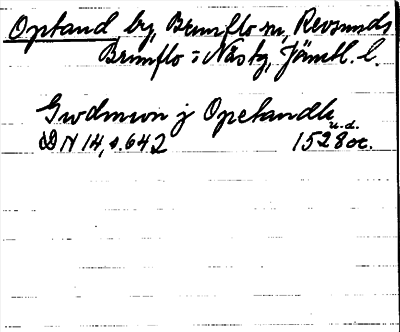 Opland by, Brunflo sn, Revsunds,
Brunflo o Näs tg, Jämtl. l.
Gwdmwn j Opelandh
u. d.
DN 14, s. 642 1528 oc.